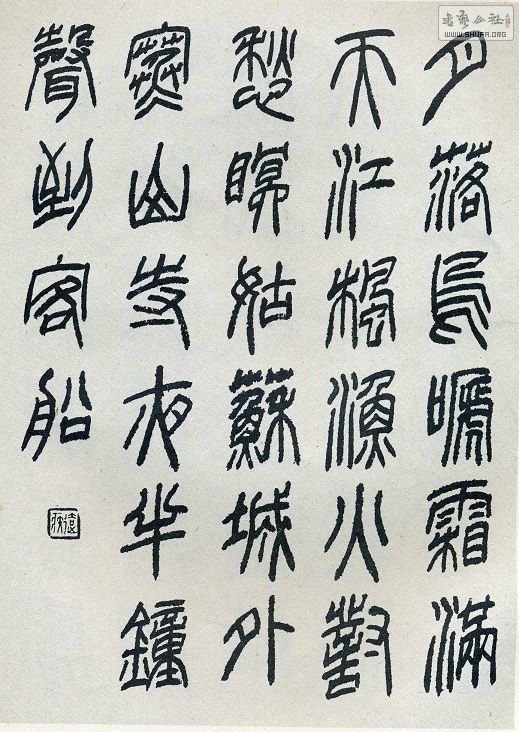 月落烏嗁霜滿
天江楓漁火對
愁眠姑蘇城外
寒山寺夜半鐘
聲到客船
書藝公社
WWW.SHUFA.ORG